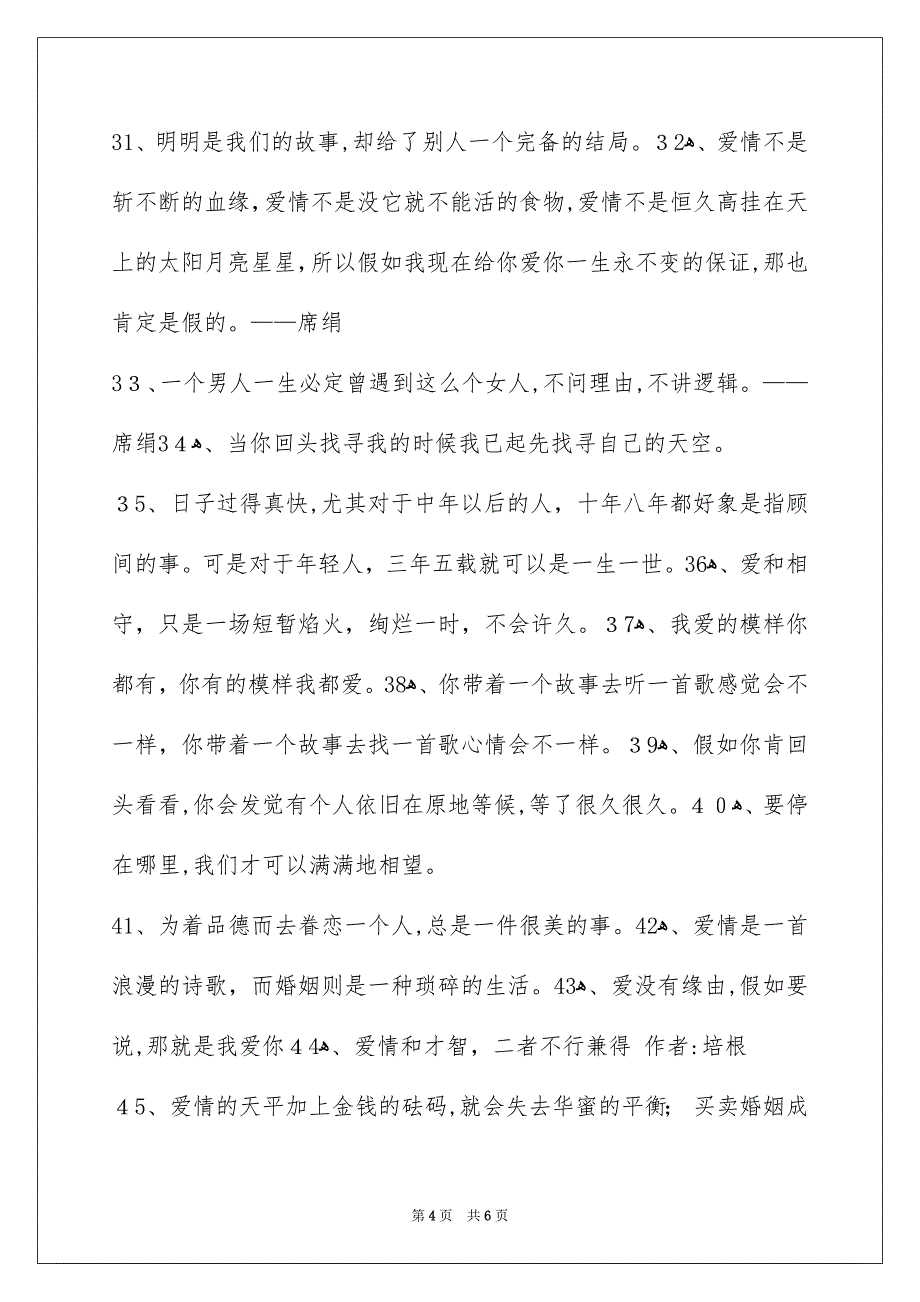 31、明明是我们的故事,却给了别人一个完备的结局。３2ﻫ、爱情不是
斩不断的血缘，爱情不是没它就不能活的食物,爱情不是恒久高挂在天
上的太阳月亮星星，所以假如我现在给你爱你一生永不变的保证,那也
肯定是假的。——席绢
３３、一个男人一生必定曾遇到这么个女人,不问理由,不讲逻辑。——
席绢3４ﻫ、当你回头找寻我的时候我已起先找寻自己的天空。
３5、日子过得真快,尤其对于中年以后的人，十年八年都好象是指顾
间的事。可是对于年轻人，三年五载就可以是一生一世。36ﻫ、爱和相
守，只是一场短暂焰火，绚烂一时，不会许久。３7ﻫ、我爱的模样你
都有，你有的模样我都爱。38ﻫ、你带着一个故事去听一首歌感觉会不
一样，你带着一个故事去找一首歌心情会不一样。３９ﻫ、假如你肯回
头看看,你会发觉有个人依旧在原地等候,等了很久很久。４０ﻫ、要停
在哪里,我们才可以满满地相望。
41、为着品德而去眷恋一个人,总是一件很美的事。42ﻫ、爱情是一首
浪漫的诗歌，而婚姻则是一种琐碎的生活。43ﻫ、爱没有缘由,假如要
说,那就是我爱你４4ﻫ、爱情和才智，二者不行兼得 作者:培根
４5、爱情的天平加上金钱的砝码,就会失去华蜜的平衡； 买卖婚姻成
第 4 页 共 6 页